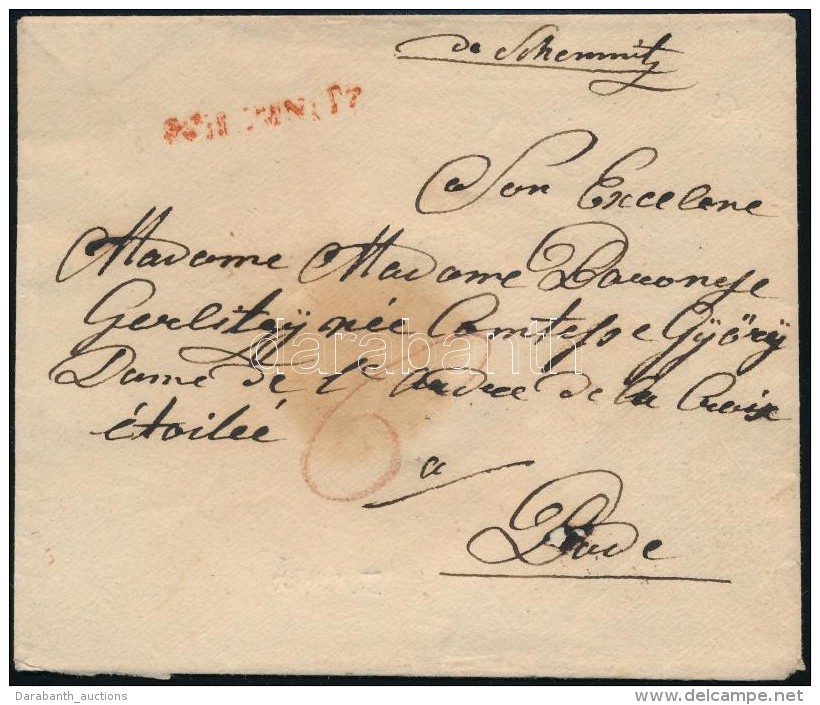 de Schemnitz
SCHEMNITZ
a Son Excelene
Madame Madame Baronesse
Gerlitzÿ née Comtesse Gyõrÿ
Dame de l' Ordre de la Croix
étoileé
6
a
Bude
darabanth
Darabanth_auctions
delcampe.net